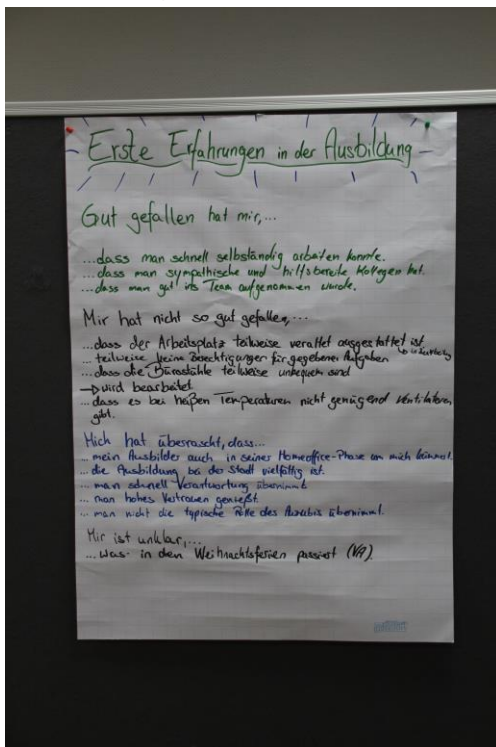 Erste Erfahrungen in der Ausbildung
Gut gefallen hat mir,...
...dass man schnell selbständig arbeiten konnte.
...dass man sympathische und hilfsbereite Kollegen hat.
...dass man gut ins Team aufgenommen wurde.
Mir hat nicht so gut gefallen,...
...dass der Arbeitsplatz teilweise veraltet ausgestattet ist
... teilweise keine Berechtigungen für gegebene Aufgaben
...dass die Bürostühle teilweise unbequem sind
→ wird bearbeitet
...dass es bei heißen Temperaturen nicht genügend Ventilatoren
gibt.
Mich hat überrascht, dass...
... mein Ausbilder auch in seiner Homeoffice-Phase um mich kümmert.
... die Ausbildung bei der Stadt vielfältig ist.
... man schnell Verantwortung übernimmt
... man hohes Vertrauen genießt.
... man nicht die typische Rolle des Azubis übernimmt.
Mir ist unklar,...
...was in den Weihnachtsferien passiert (VA).